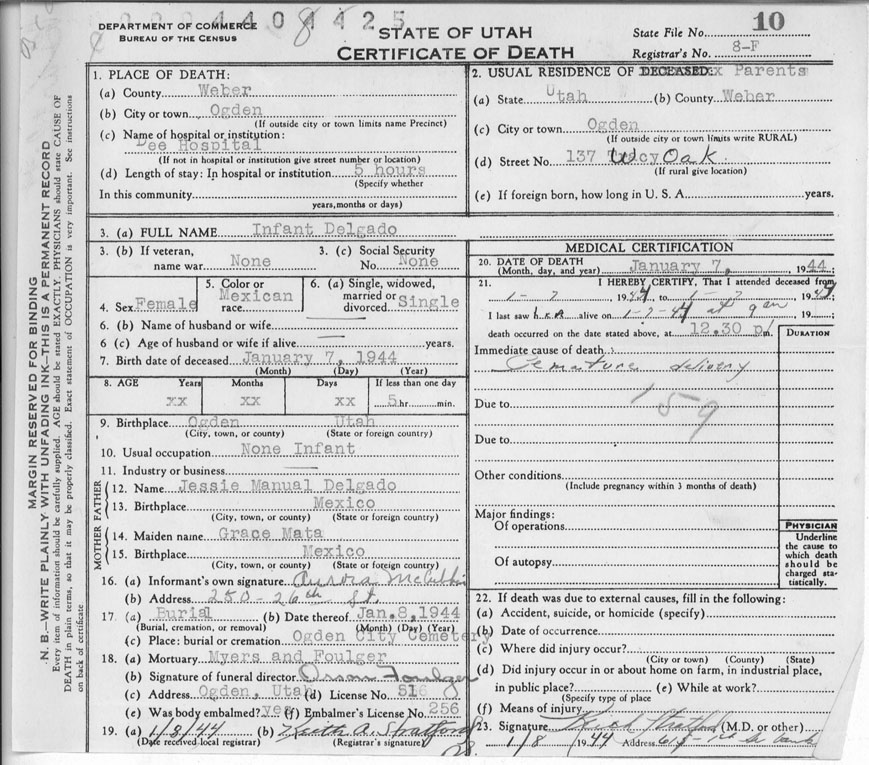 DEPARTMENT OF COMMERCE
BUREAU OF THE CENSUS
4404425
STATE OF UTAH
CERTIFICATE OF DEATH
State File No. 10
Registrar's No. 8-F
MARGIN RESERVED FOR BINDING
N. B.—WRITE PLAINLY WITH UNFADING INK—THIS IS A PERMANENT RECORD
Every item of information should be carefully supplied. AGE should be stated EXACTLY. PHYSICIANS should state CAUSE OF
DEATH in plain terms, so that it may be properly classified. Exact statement of OCCUPATION is very important. See instructions
on back of certificate
1. PLACE OF DEATH:
(a) County Weber
(b) City or town Ogden
(If outside city or town limits name Precinct)
(c) Name of hospital or institution:
Dee Hospital
(If not in hospital or institution give street number or location)
(d) Length of stay: In hospital or institution 5 hours
(Specify whether
In this community
years, months or days)
2. USUAL RESIDENCE OF DECEASED: x Parents
(a) State Utah (b) County Weber
(c) City or town Ogden
(If outside city or town limits write RURAL)
(d) Street No. 137 Oak
(If rural give location)
(e) If foreign born, how long in U. S. A. years.
3. (a) FULL NAME Infant Delgado
3. (b) If veteran, name war None
3. (c) Social Security No. None
4. Sex Female
5. Color or race Mexican
6. (a) Single, widowed, married or divorced Single
6. (b) Name of husband or wife
6 (c) Age of husband or wife if alive years.
7. Birth date of deceased January 7, 1944
(Month) (Day) (Year)
8. AGE Years Months Days If less than one day
xx xx xx 5 hr. min.
9. Birthplace Ogden Utah
(City, town, or county) (State or foreign country)
10. Usual occupation None Infant
11. Industry or business
FATHER
12. Name Jessie Manual Delgado
13. Birthplace Mexico
(City, town, or county) (State or foreign country)
MOTHER
14. Maiden name Grace Mata
15. Birthplace Mexico
(City, town, or county) (State or foreign country)
16. (a) Informant's own signature Aurora McCubbin
(b) Address 250 - 26th St.
17 (a) Burial (b) Date thereof Jan.8,1944
(Burial, cremation, or removal) (Month) (Day) (Year)
(c) Place: burial or cremation Ogden City Cemetery
18. (a) Mortuary Myers and Foulger
(b) Signature of funeral director Orson Foulger
(c) Address Ogden, Utah (d) License No. 516
(e) Was body embalmed? yes (f) Embalmer's License No. 256
19. (a) 1/8/44 (b) Keith A. Stratford
(Date received local registrar) (Registrar's signature)
MEDICAL CERTIFICATION
20. DATE OF DEATH
(Month, day, and year) January 7, 1944
21. I HEREBY CERTIFY, That I attended deceased from
1-7 1944 to 1-7 1944
I last saw her alive on 1-7-44 at 9 am 19
death occurred on the date stated above, at 12.30 p m.
DURATION
Immediate cause of death
Premature delivery
Due to 159
Due to
Other conditions
(Include pregnancy within 3 months of death)
Major findings:
Of operations
Of autopsy
PHYSICIAN
Underline
the cause to
which death
should be
charged sta-
tistically.
22. If death was due to external causes, fill in the following:
(a) Accident, suicide, or homicide (specify)
(b) Date of occurrence
(c) Where did injury occur?
(City or town) (County) (State)
(d) Did injury occur in or about home on farm, in industrial place,
in public place? (e) While at work?
(Specify type of place
(f) Means of injury
23. Signature (M.D. or other)
1/8 1944 Address